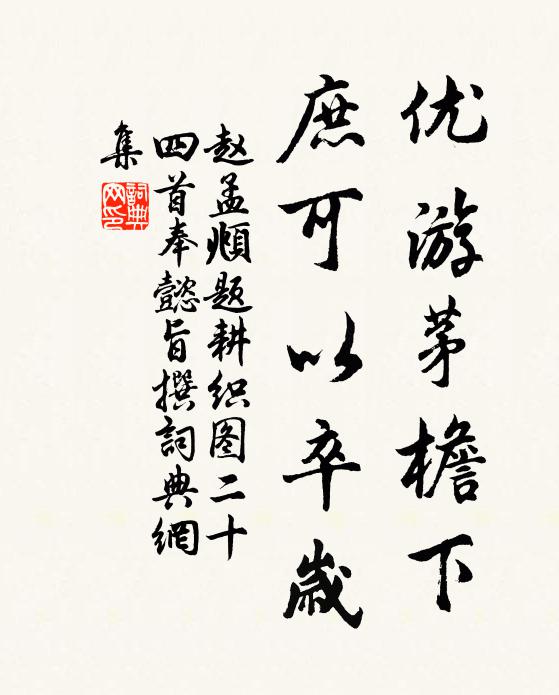 优游茅檐下
庶可以卒歲
赵孟頫题耕织图二十
四首奉懿旨撰詞典網
集
詞典
网印